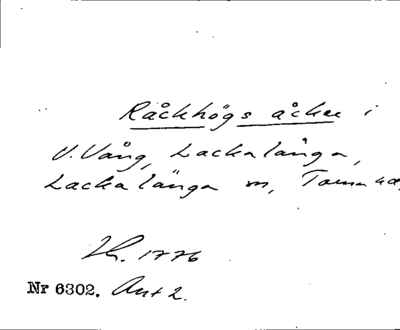 Råckhögs åcker i
V. Vång, Lackalånga,
Lackalänga sn, Torna hd,
1776
Nr 6302. Akt 2.